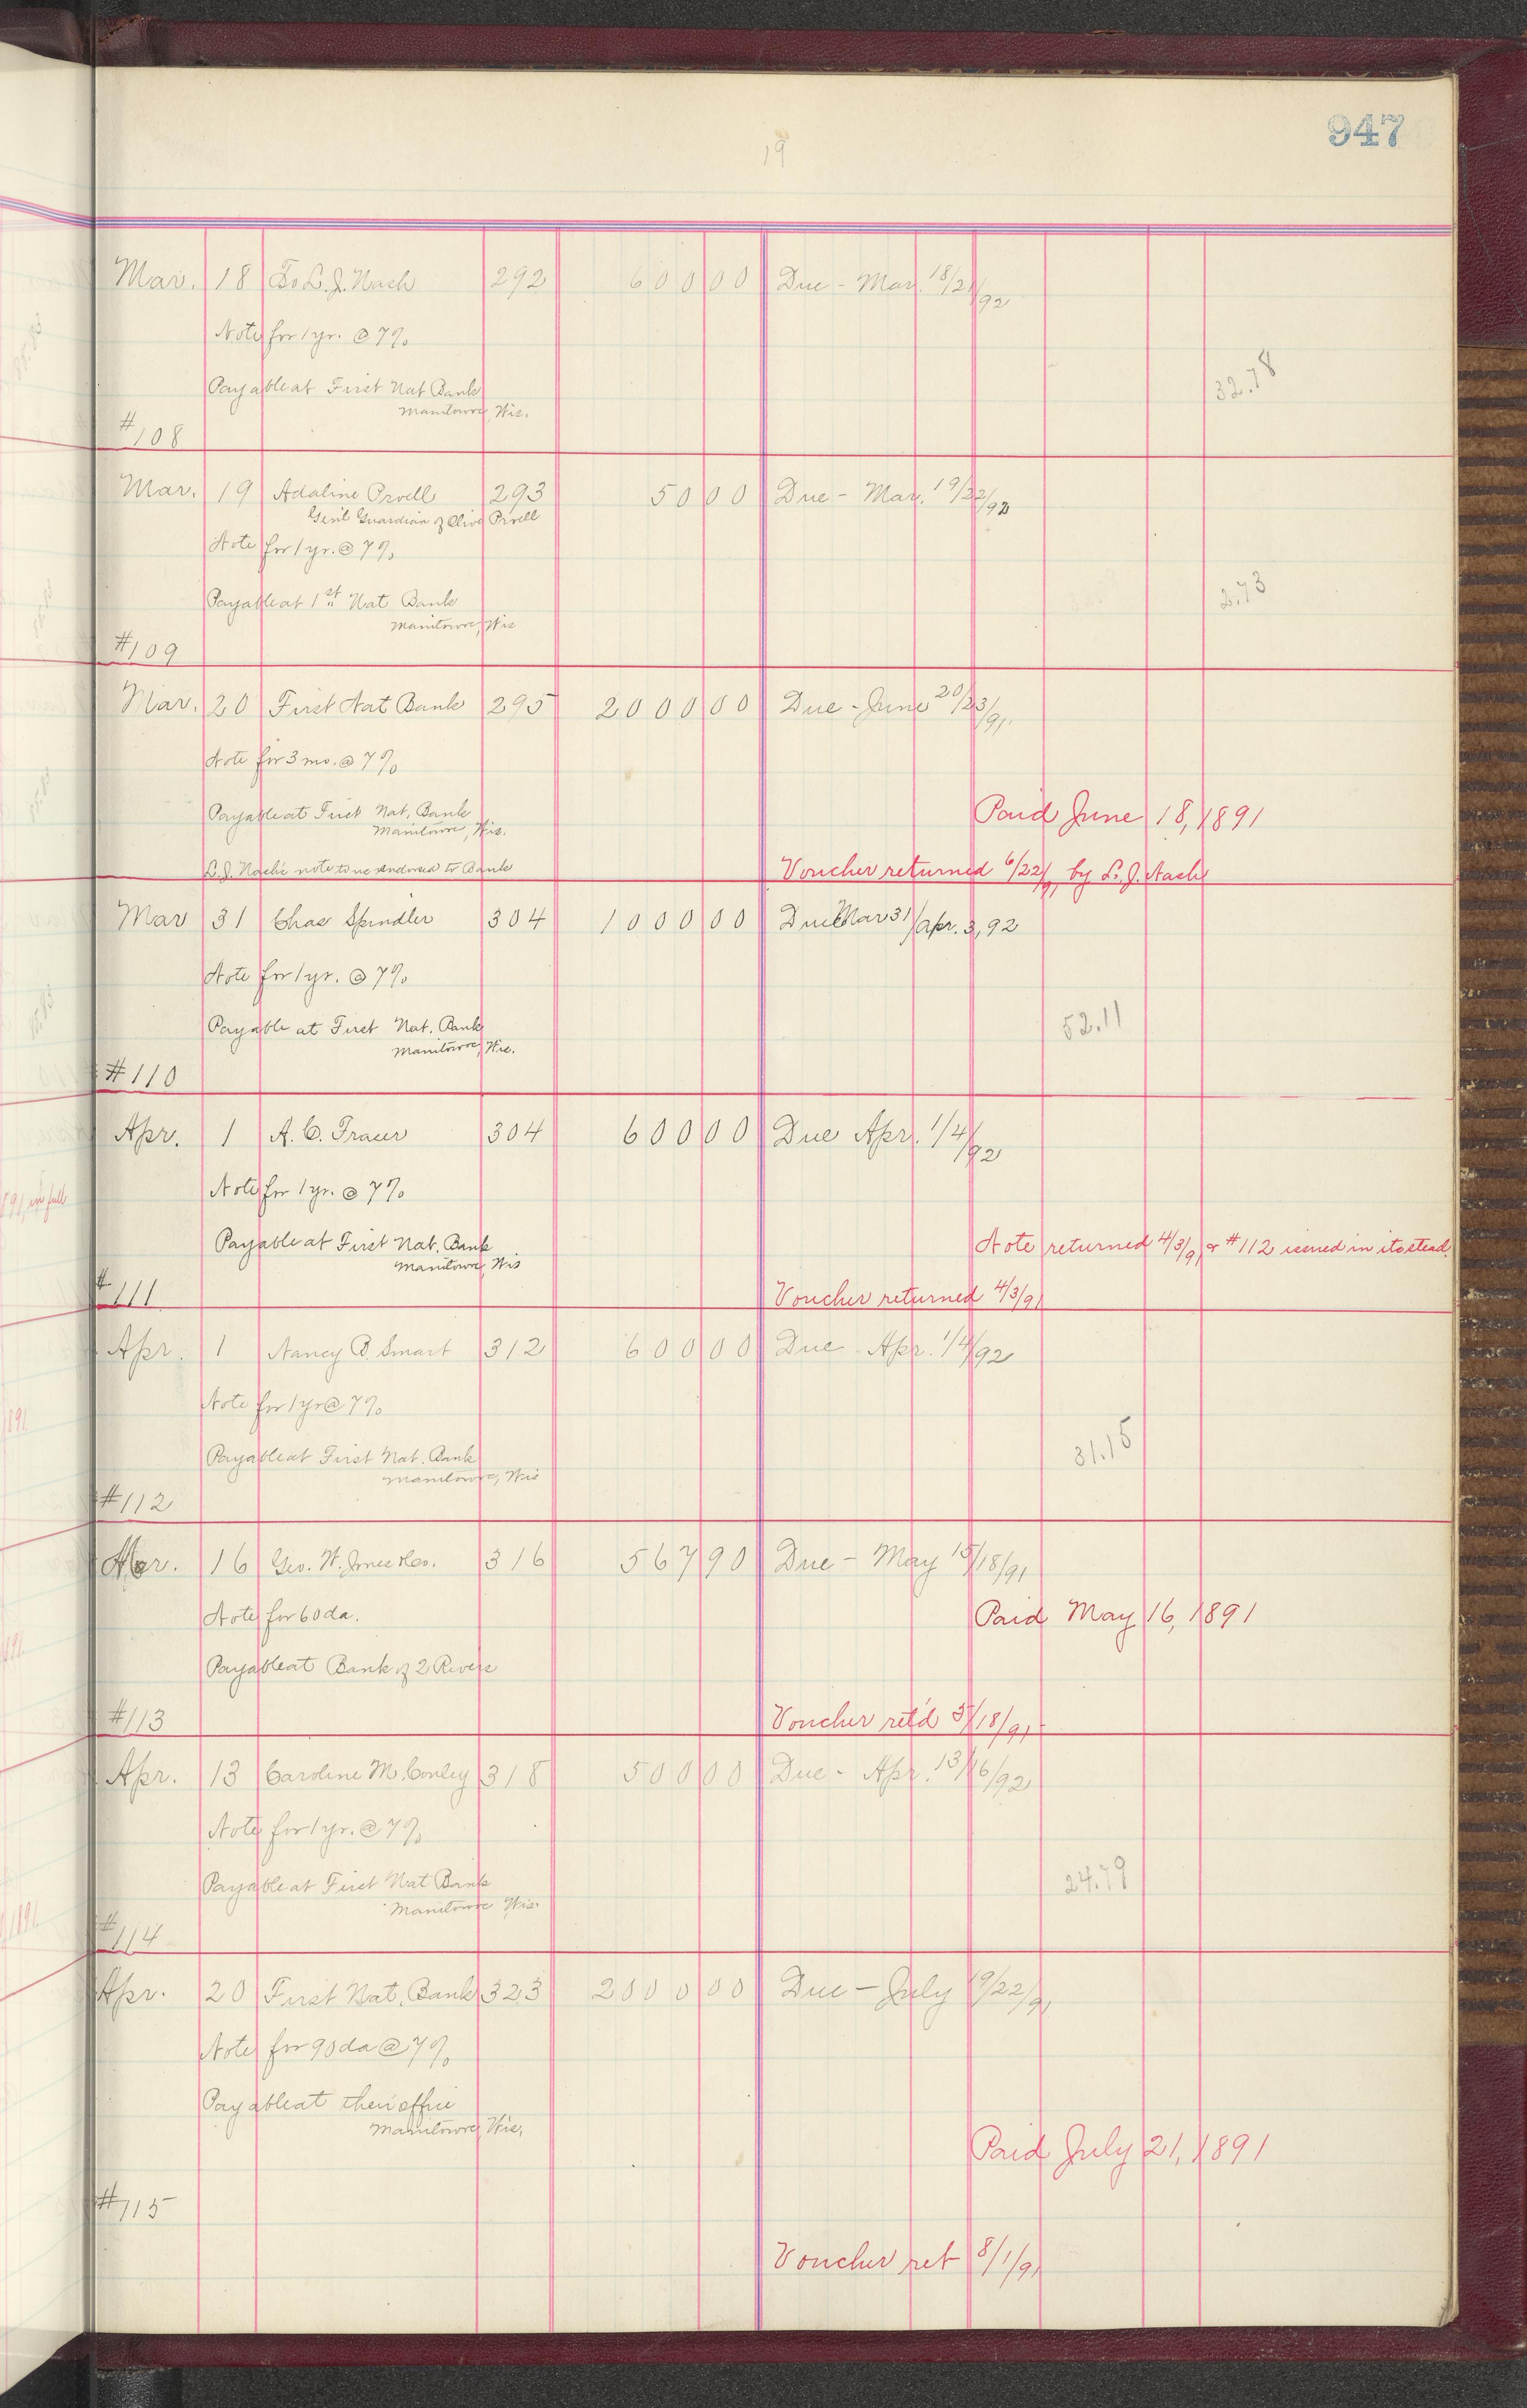 947
19
Mar. 18 To L. J. Nash 292 600 00 Due - Mar. 18/21/92
Note for 1 yr. @ 7%
Payable at First Nat Bank
Manitowoc, Wis.
32.78
#108
Mar. 19 Adaline Prvell 293 50 00 Due - Mar. 19/22/92
Gen'l Guardian of Olive Prvell
Note for 1 yr. @ 7%
Payable at 1st Nat Bank
Manitowoc, Wis
2.73
#109
Mar. 20 First Nat Bank 295 2000 00 Due - June 20/23/91.
Note for 3 mo. @ 7%
Payable at First Nat. Bank
Manitowoc, Wis.
Paid June 18, 1891
L. J. Nash's note to me endorsed to Bank
Voucher returned 6/22/91 by L. J. Nash
Mar 31 Chas Spindler 304 1000 00 Due Mar 31/Apr. 3, 92
Note for 1 yr. @ 7%
Payable at First Nat. Bank
Manitowoc, Wis.
52.11
#110
Apr. 1 A. C. Fraser 304 600 00 Due Apr. 1/4/92
Note for 1 yr. @ 7%
Payable at First Nat. Bank
Manitowoc, Wis
Note returned 4/3/91 & #112 issued in its stead.
#111 Voucher returned 4/3/91
Apr. 1 Nancy B. Smart 312 600 00 Due Apr. 1/4/92
Note for 1 yr @ 7%
Payable at First Nat. Bank
Manitowoc, Wis
31.15
#112
Mar. 16 Geo. W. Jones Res. 316 567 90 Due - May 15/18/91
Note for 60 da.
Paid May 16, 1891
Payable at Bank of 2 Rivers
#113 Voucher ret'd 5/18/91
Apr. 13 Caroline M. Conley 318 500 00 Due - Apr. 13/16/92
Note for 1 yr. @ 7%
Payable at First Nat Bank
Manitowoc Wis.
24.79
#114
Apr. 20 First Nat. Bank 323 2000 00 Due - July 19/22/91
Note for 90 da @ 7%
Payable at their office
Manitowoc, Wis.
Paid July 21, 1891
#115
Voucher ret 8/1/91